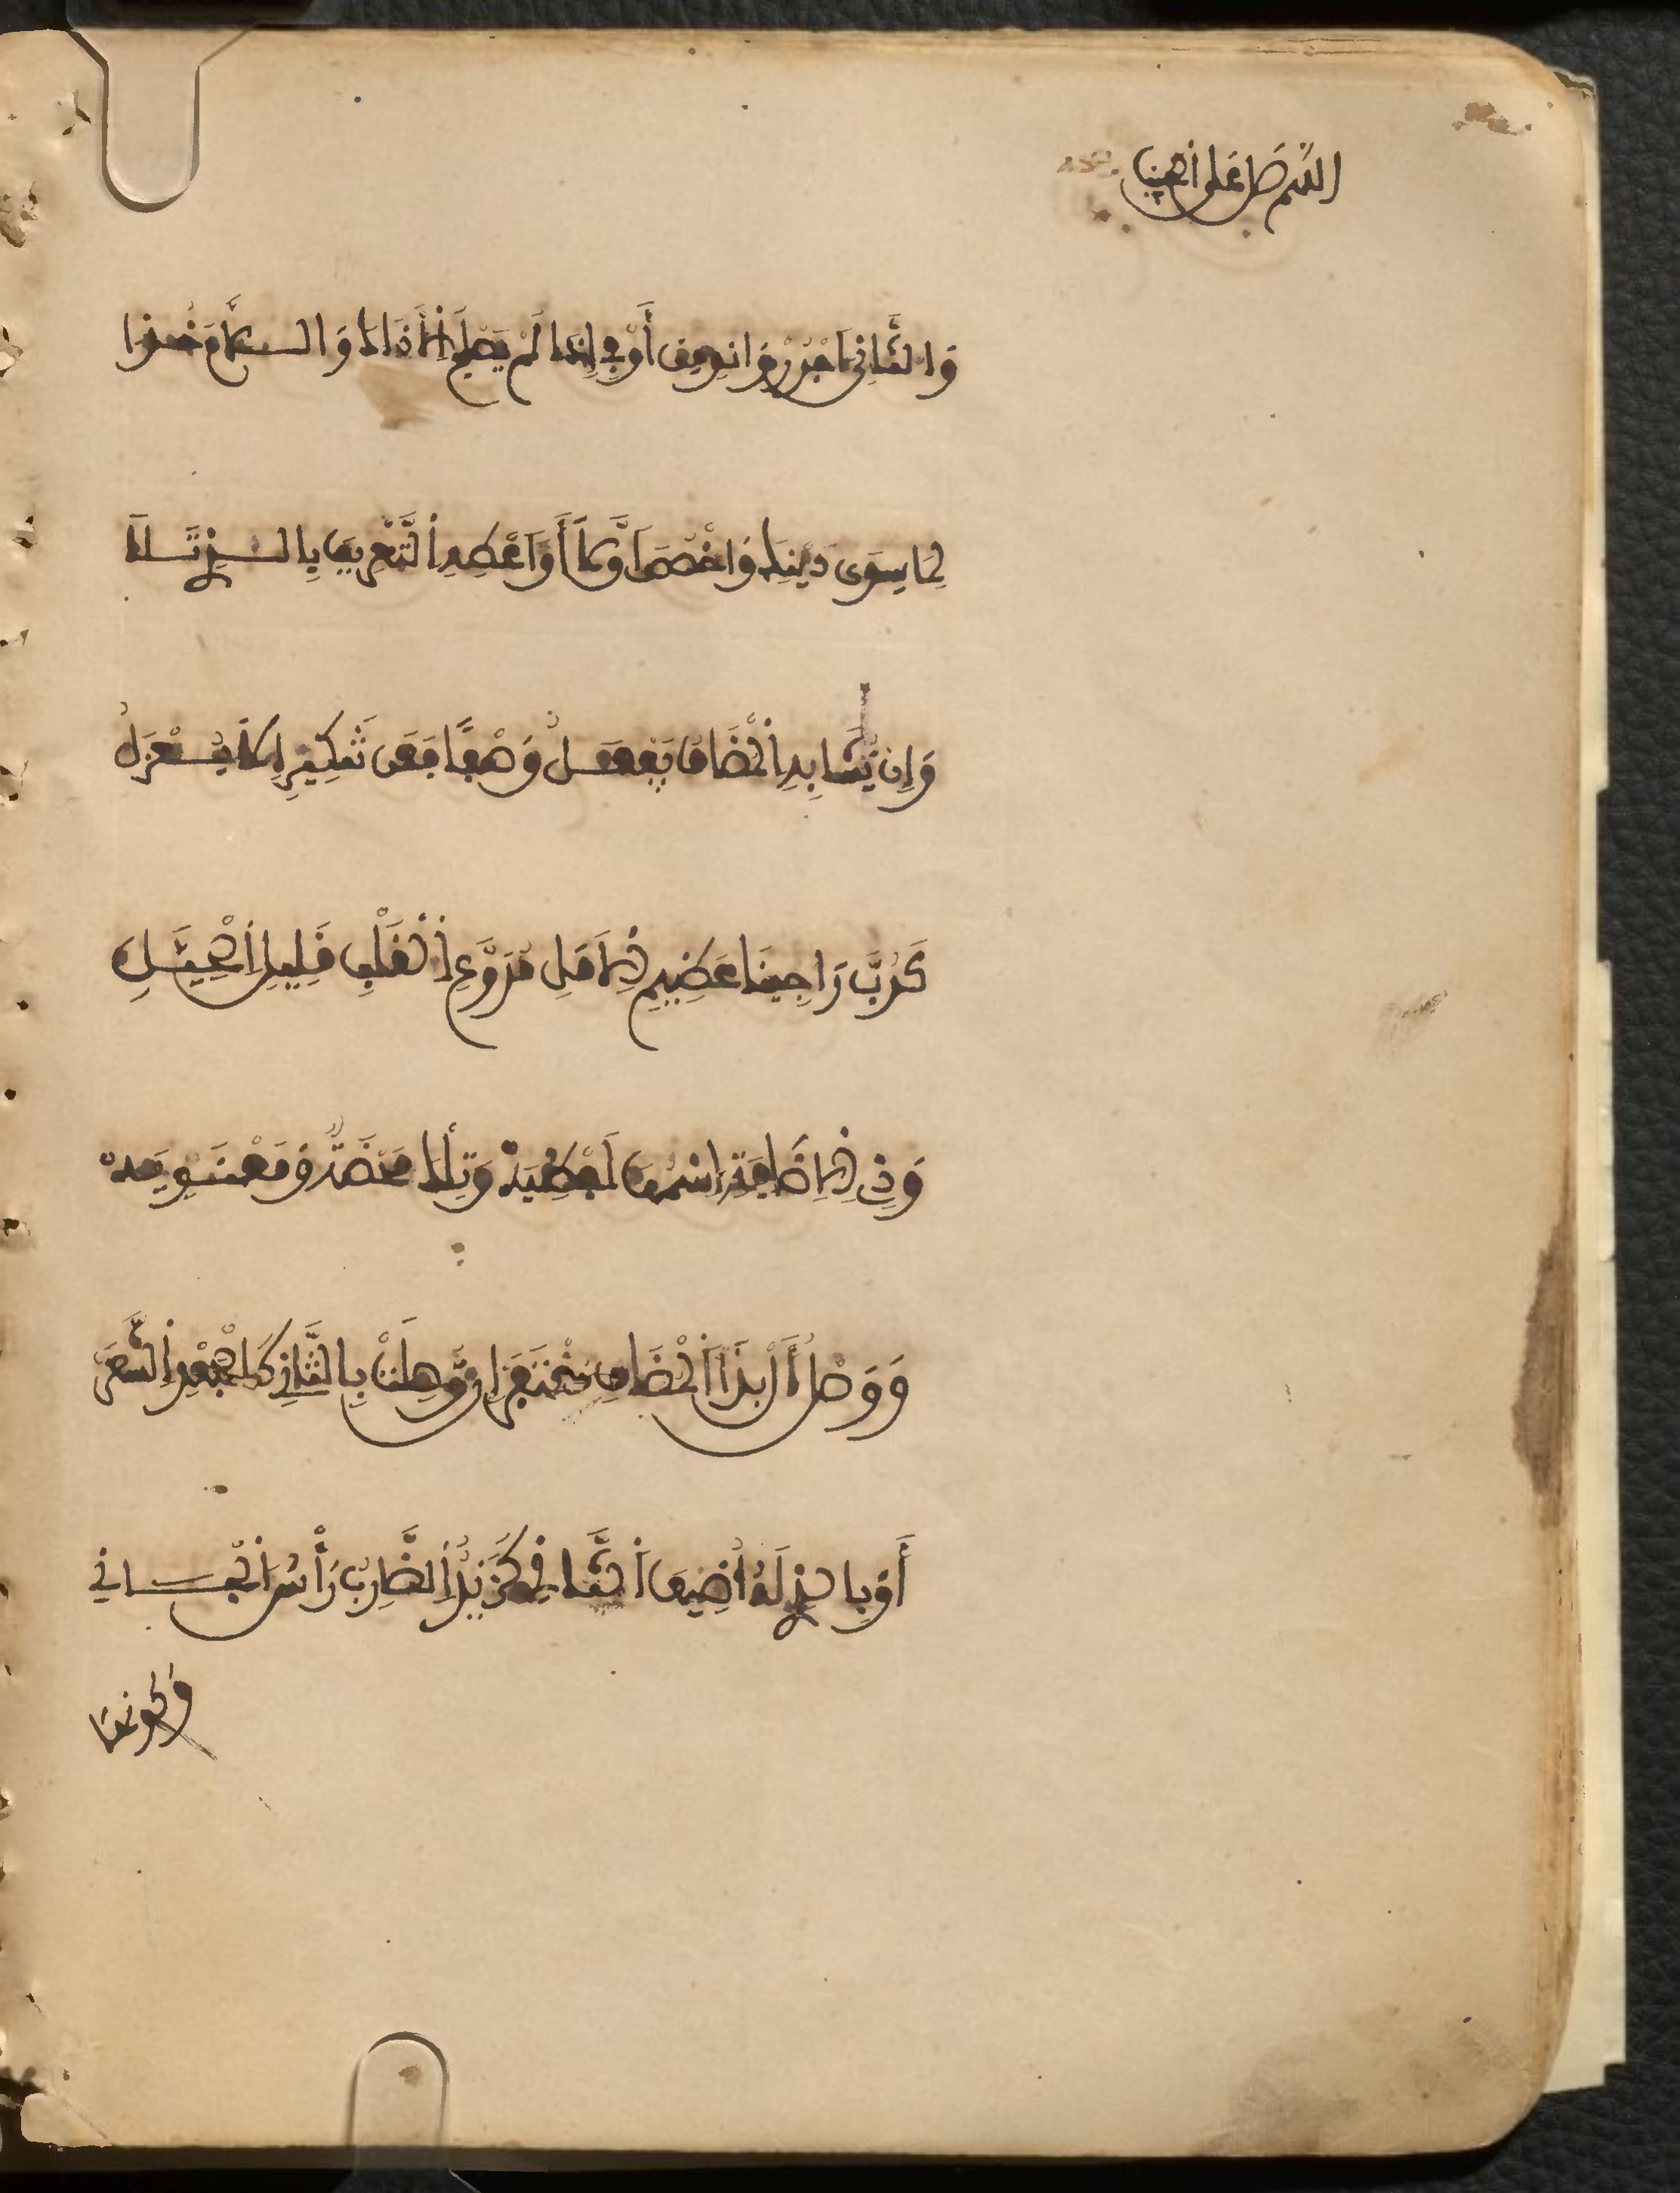 اللهم صل على
وَالثَّانِيَ اجْرُرْ وَانْوِ مِنْ أَوْ فِي إِذَا لَمْ يَصْلُحِ إِلَّا ذَاكَ وَاللَّامَ خُذَا
لِمَا سِوَى ذَيْنِكَ وَاخْصُصْ أَوَّلَا أَوْ أَعْطِهِ التَّعْرِيفَ بِالَّذِي تَلَا
وَإِنْ يُشَابِهِ الْمُضَافُ يَفْعَلُ وَصْفًا فَعَنْ تَنْكِيرِهِ لَا يُعْزَلُ
كَرُبَّ رَاجِينَا عَظِيمِ الْأَمَلِ مُرَوَّعِ الْقَلْبِ قَلِيلِ الْحِيَلِ
وَذِي الْإِضَافَةُ اسْمُهَا لَفْظِيَّهْ وَتِلْكَ مَحْضَةٌ وَمَعْنَوِيَّهْ
وَوَصْلُ أَلْ بِذَا الْمُضَافِ مُغْتَفَرْ إِنْ وُصِلَتْ بِالثَّانِ كَالْجَعْدِ الشَّعَرْ
أَوْ بِالَّذِي لَهُ أُضِيفَ الثَّانِي كَزَيْدٌ الضَّارِبُ رَأْسِ الْجَانِي
وكونها